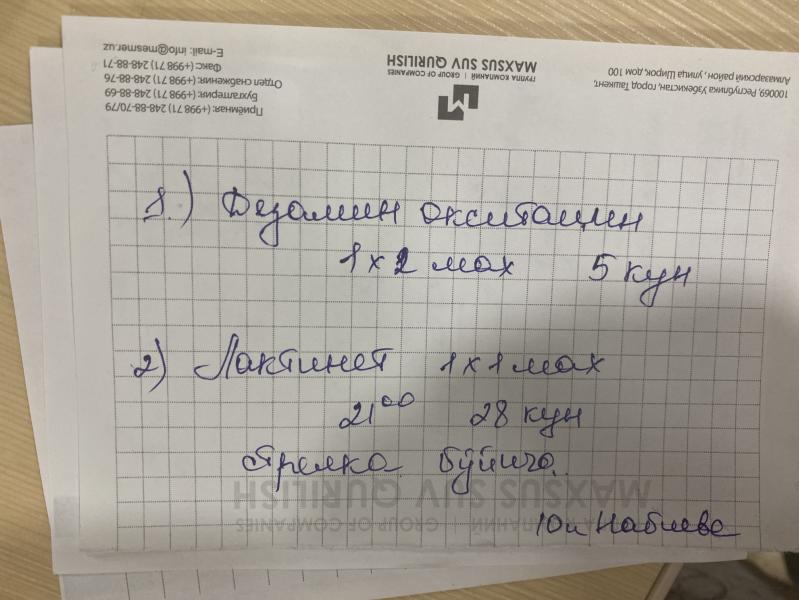 100069, Республика Узбекистан, город Ташкент,
Алмазарский район, улица Широк, дом 100
ГРУППА КОМПАНИЙ | GROUP OF COMPANIES
MAXSUS SUV QURILISH
Приёмная: (+998 71) 248-88-70/79
Бухгалтерия: (+998 71) 248-88-69
Отдел снабжения: (+998 71) 248-88-76
Факс (+998 71) 248-88-71
E-mail: info@mesmer.uz
1.) Дезамин окситацин
1 x 2 мах 5 кун
2) Лактинет 1 x 1 мах
21⁰⁰ 28 кун
Стрелка бўйича
MAXSUS SUV QURILISH
КОМПАНИЙ GROUP OF COMPANIES
Набиева